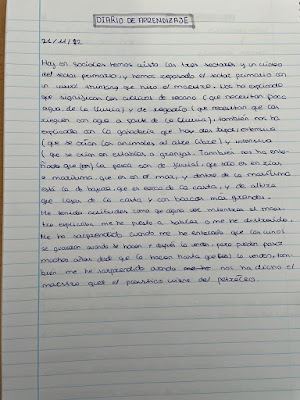 DIARIO DE APRENDIZAJE
21/11/22
Hoy en sociales hemos visto los tres sectores y un video
del sector primario, y hemos repasado el sector primario con
un visual thinking que hizo el maestro. Nos ha explicado
que significan los cultivos de secano (que necesitan poca
agua de la lluvia) y de regadío (que necesitan que los
rieguen con agua a parte de la lluvia), también nos ha
explicado con la ganadería que hay dos tipos, extensiva
(que se crían los animales al aire libre) y intensiva
(que se crían en establos o granjas. También nos ha ense-
ñado que la pesca son de fluvial, que solo es en ríos
o marítima que es en el mar, y dentro de la marítima
está la de bajura, que es cerca de la costa, y de altura
que lejos de la costa y con barcos más grandes.
He tenido actitudes como que alguna vez mientras el maes-
tro explicaba me he puesto a hablar o me he distraído.
Me ha sorprendido cuando me he enterado que los vinos
se guardan cuando se hacen y después la venden, pero pueden pasar
muchos años desde que la hacen hasta que la venden, tam-
bién me he sorprendido cuando nos ha dicho el
maestro que el plástico viene del petróleo.